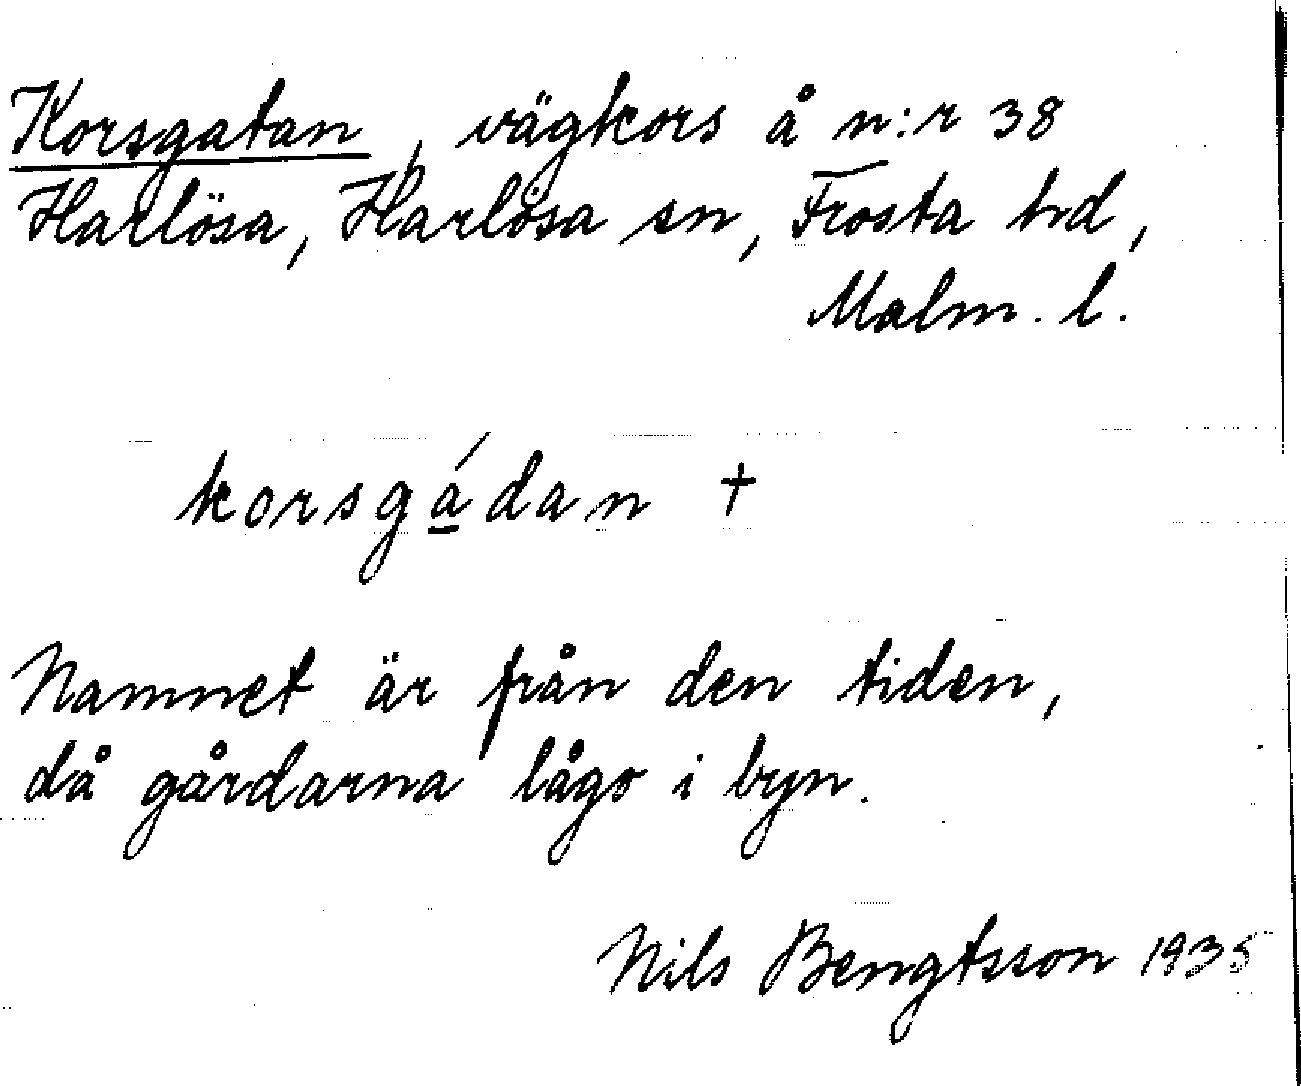 Korsgatan, vägkors å n:r 38
Harlösa, Harlösa sn, Frosta hd,
Malm. l.
korsgá̱dan †
Namnet är från den tiden,
då gårdarna lågo i byn.
Nils Bengtsson 1935